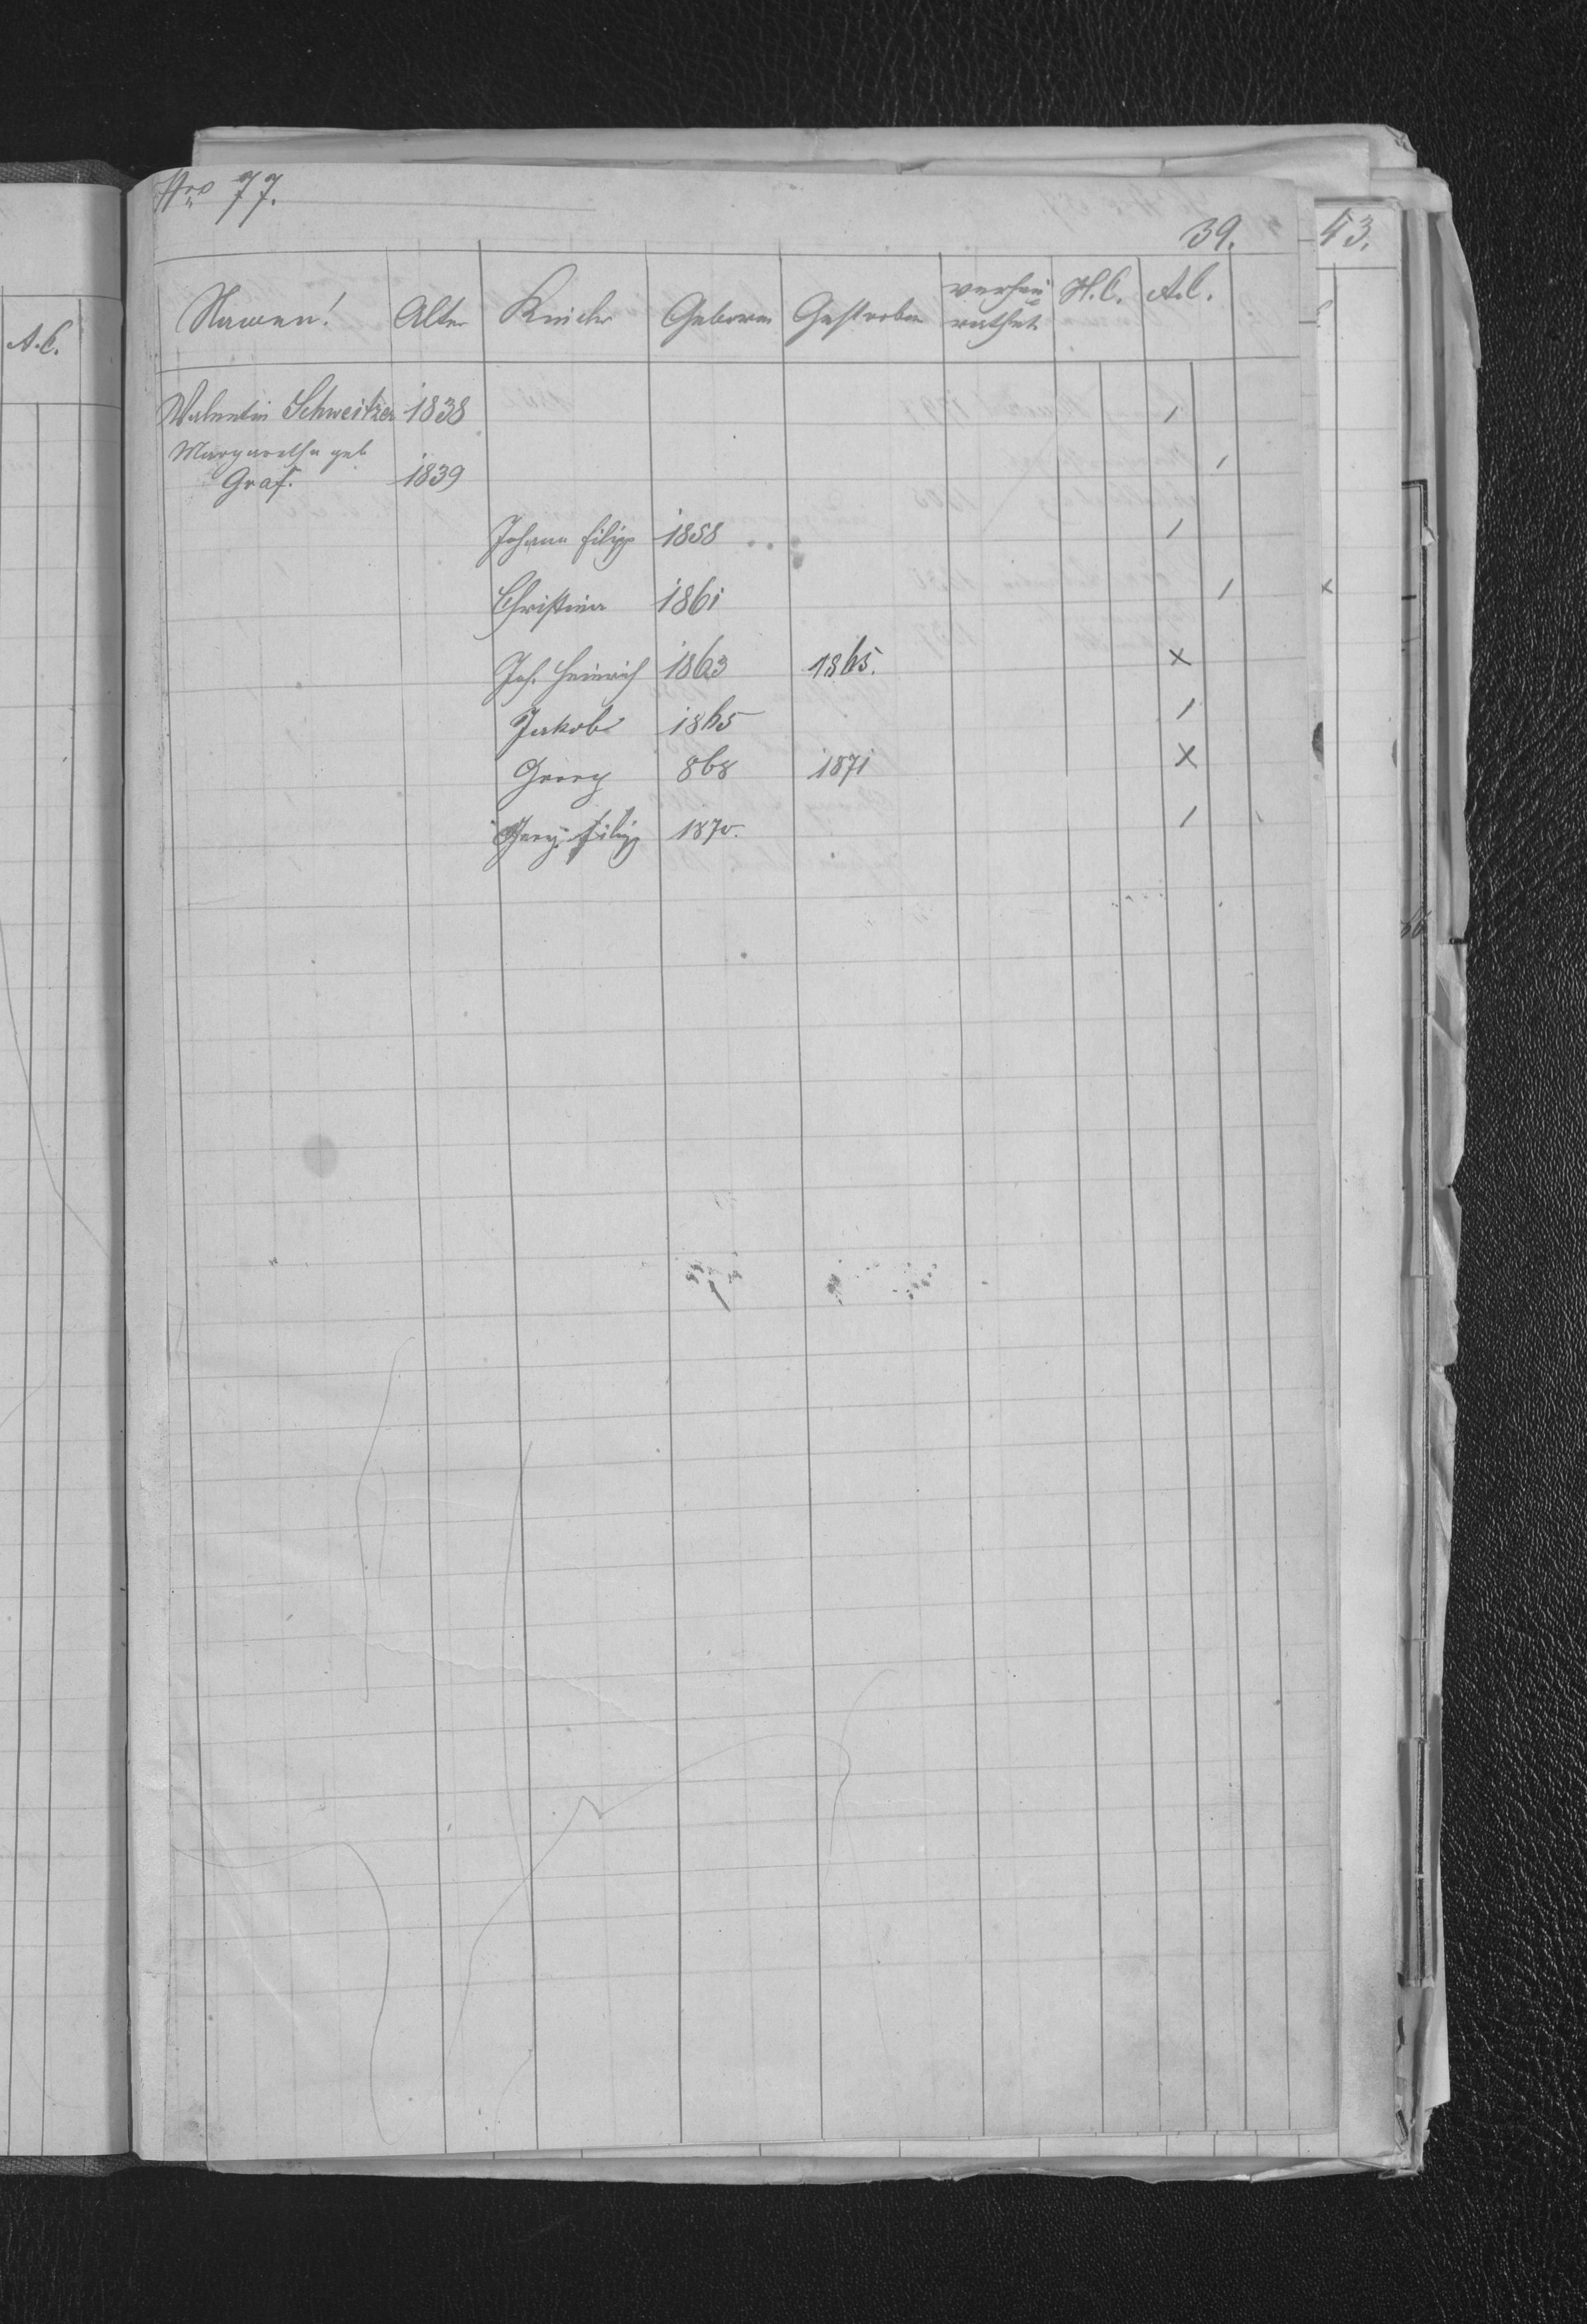 Nro 77.
39.
43.
A.C.
Namen! Alter Kinder Geboren Gestorben verheu= rathet H.C. A.C.
Walentin Schweitzer 1838 /
Margaretha geb
Graf. 1839 /
Johann Filipp 1858 /
Christina 1861 /
Joh. Heinrich 1863 1865. x
Jakob 1865 /
Georg 868 1871 x
Georg Filipp 1870. /